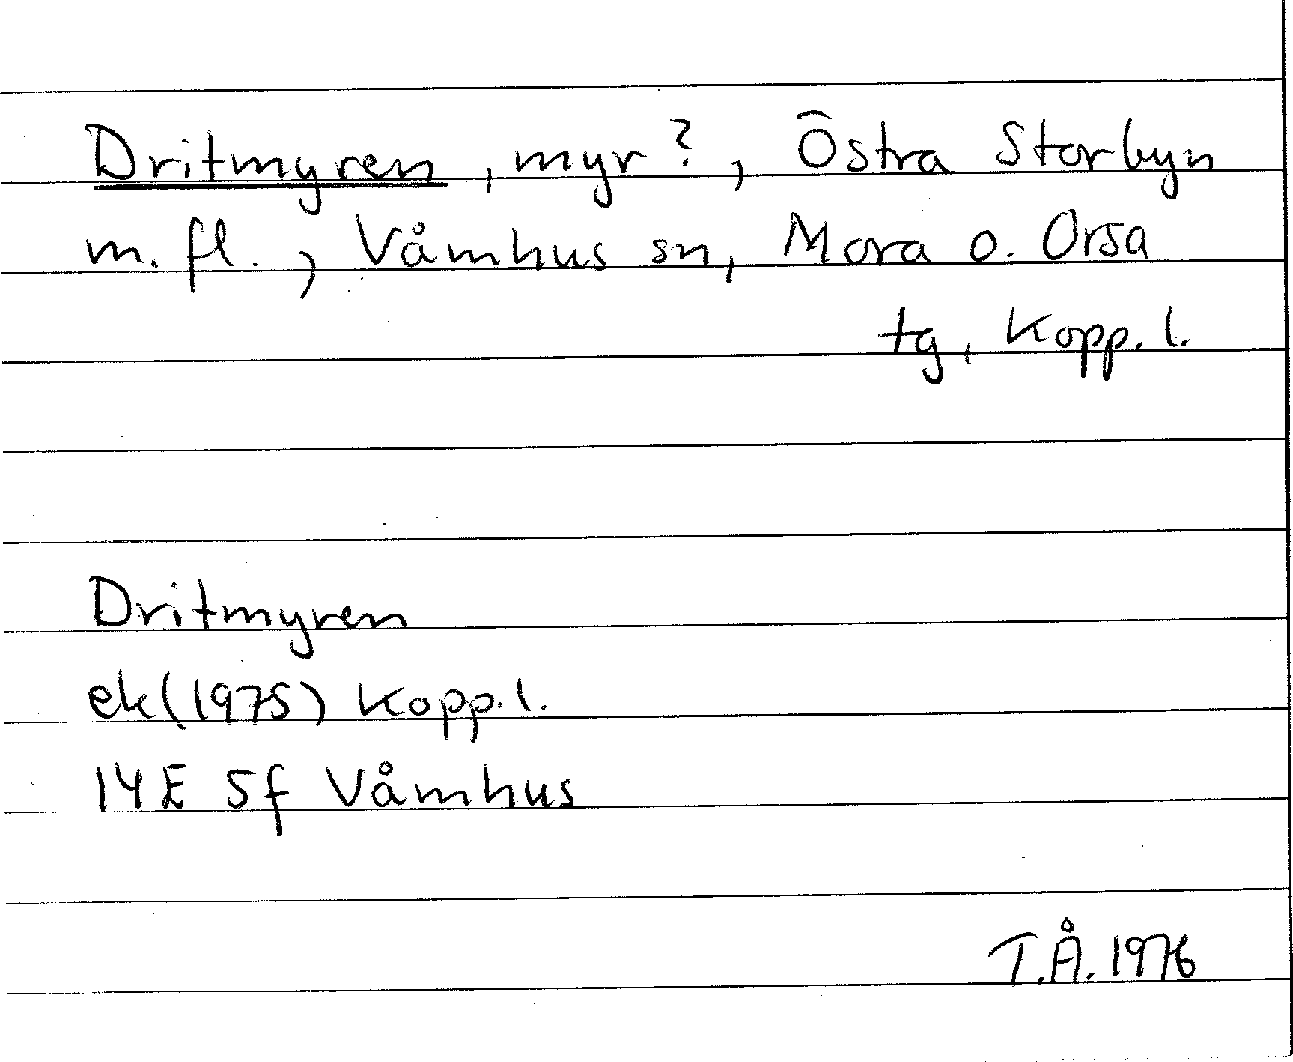 Dritmyren, myr?, Östra Storbyn
m.fl., Våmhus sn, Mora o. Orsa
tg, Kopp.l.
Dritmyren
ek(1975) Kopp.l.
14E 5f Våmhus
T.Å. 1976